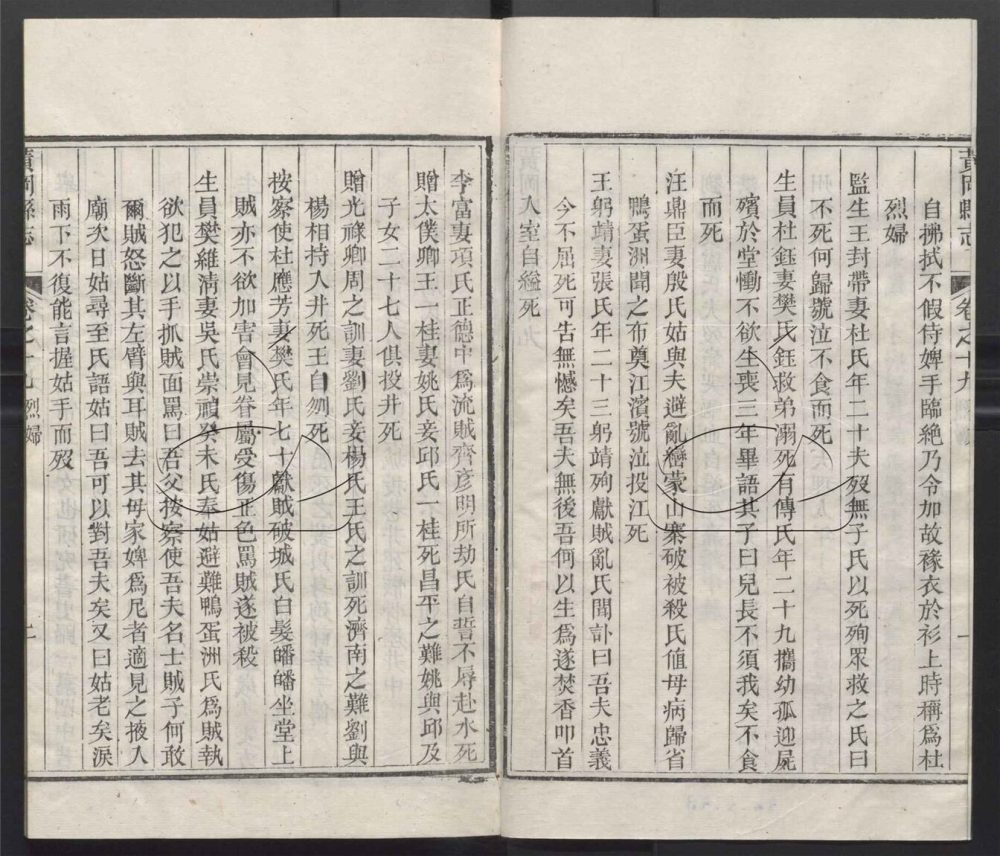 黃岡縣志
卷之十九
一
自拂拭不假侍婢手臨絶乃令加故褖衣於衫上時稱爲杜
烈婦
監生王封帶妻杜氏年二十夫歿無子氏以死殉眾救之氏曰
不死何歸號泣不食而死
生員杜鈺妻樊氏鈺救弟溺死有傳氏年二十九攜幼孤迎屍
殯於堂慟不欲生喪三年畢語其子曰兒長不須我矣不食
而死
汪鼎臣妻殷氏姑與夫避亂巒蒙山寨破被殺氏值母病歸省
鴨蛋洲聞之布奠江濱號泣投江死
王躬靖妻張氏年二十三躬靖殉獻賊亂氏聞訃曰吾夫忠義
今不屈死可告無憾矣吾夫無後吾何以生爲遂焚香叩首
入室自縊死
李富妻項氏正德中爲流賊齊彦明所劫氏自誓不辱赴水死
贈太僕卿王一桂妻姚氏妾邱氏一桂死昌平之難姚與邱及
子女二十七人俱投井死
贈光祿卿周之訓妻劉氏妾楊氏王氏之訓死濟南之難劉與
楊相持入井死王自刎死
按察使杜應芳妻樊氏年七十獻賊破城氏白髮皤皤坐堂上
賊亦不欲加害會見眷屬受傷正色罵賊遂被殺
生員樊維淸妻吳氏崇禎癸未氏奉姑避難鴨蛋洲氏爲賊執
欲犯之以手抓賊面罵曰吾父按察使吾夫名士賊子何敢
爾賊怒斷其左臂與耳賊去其母家婢爲尼者適見之掖入
廟次日姑尋至氏語姑曰吾可以對吾夫矣又曰姑老矣淚
雨下不復能言握姑手而歿
黃岡縣志
卷之十九 烈婦
二